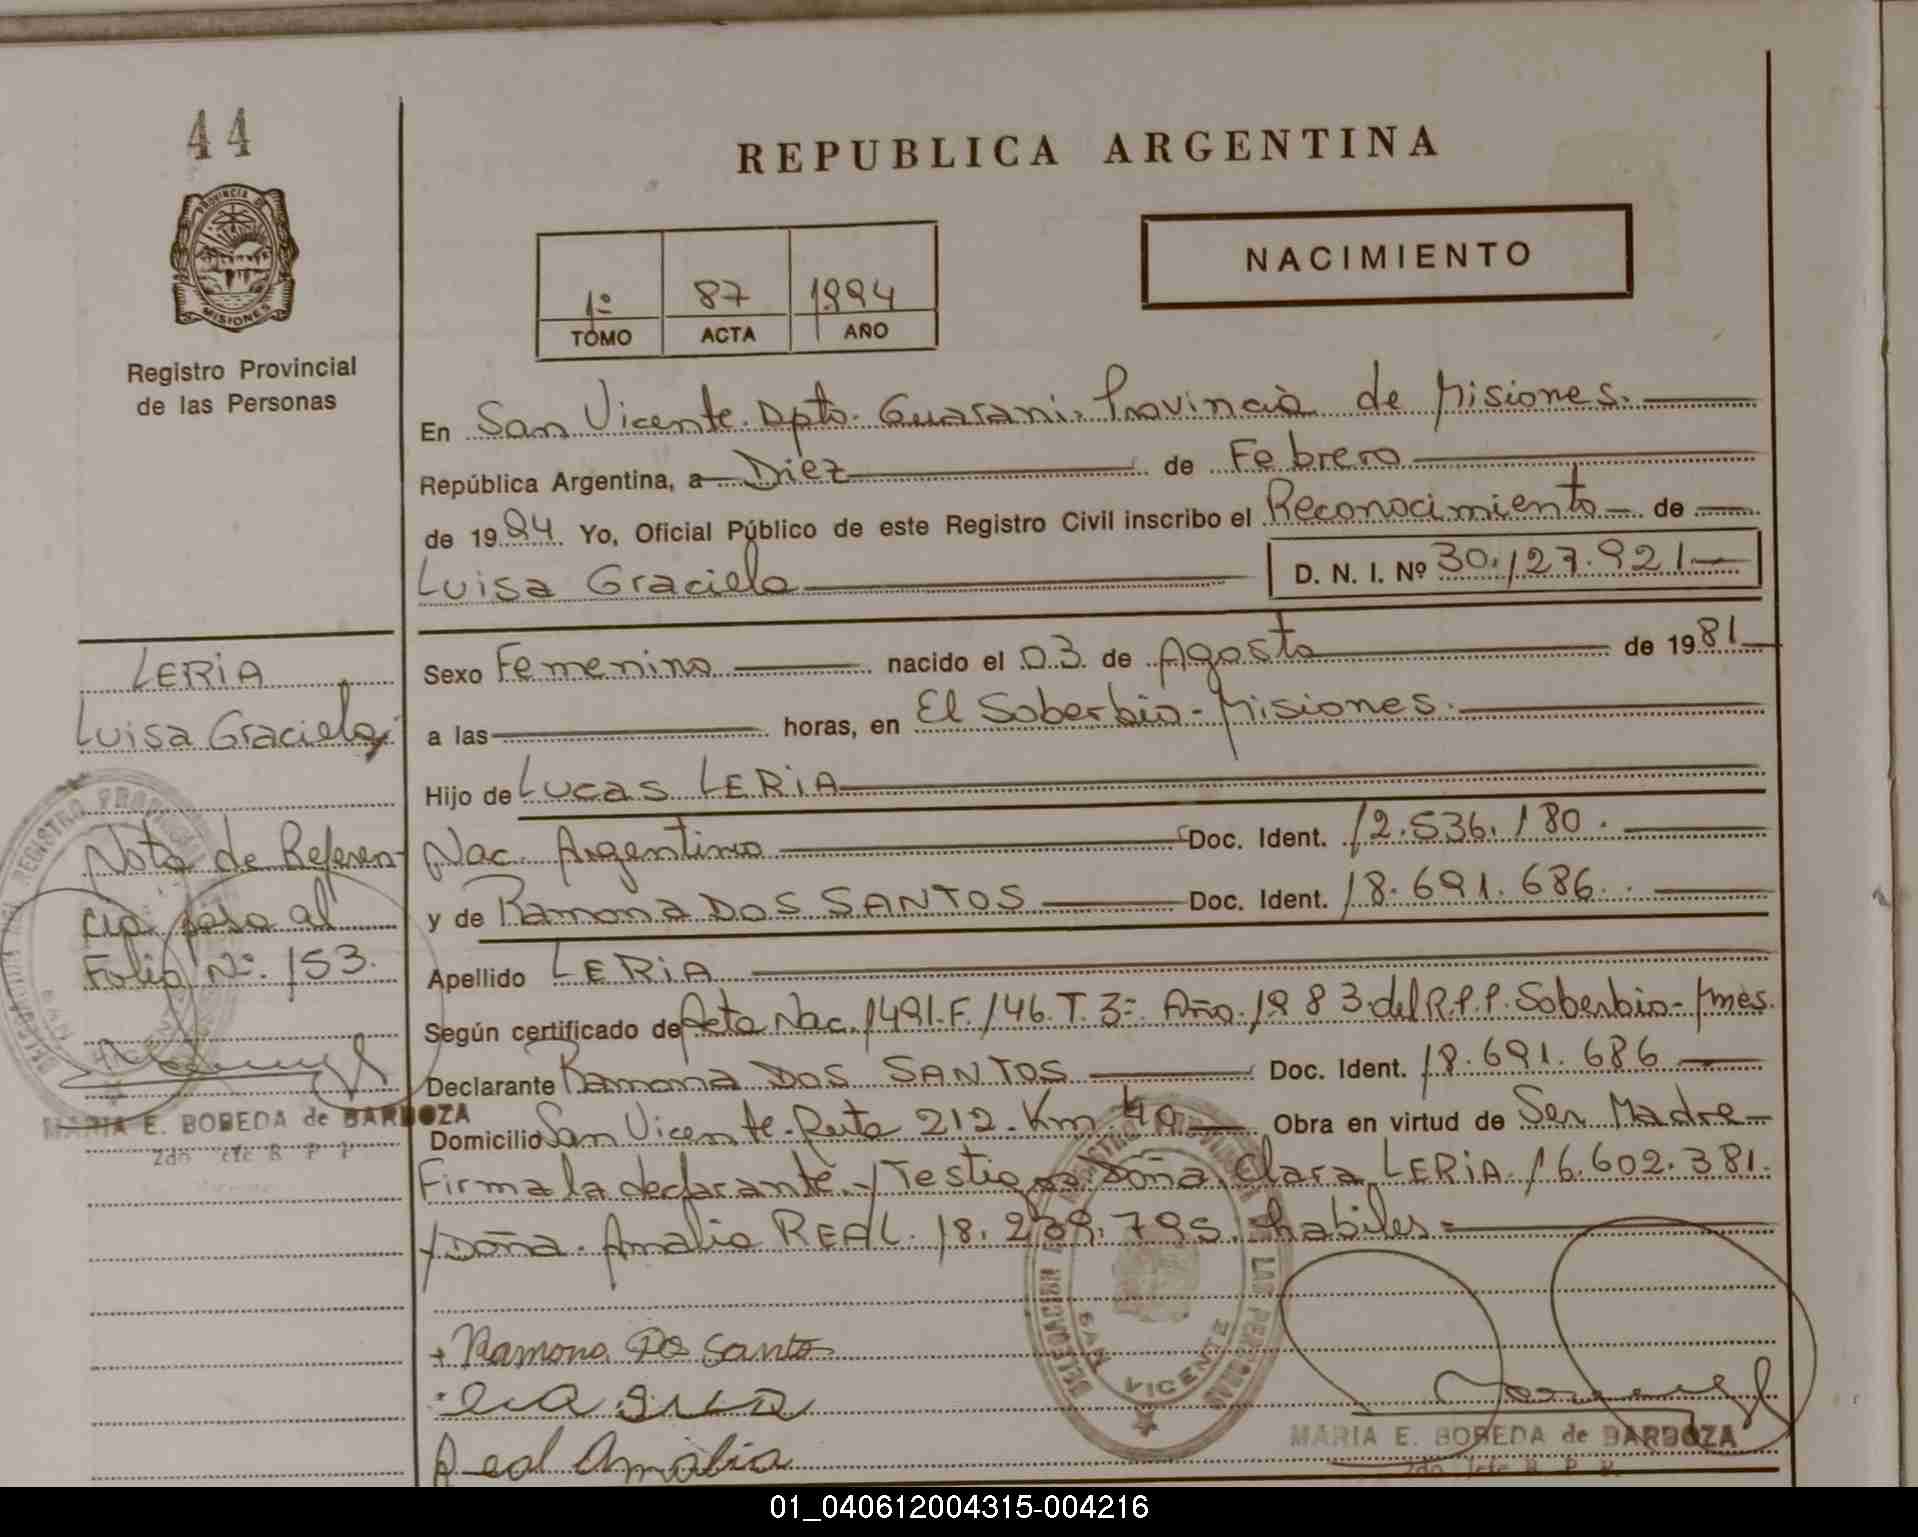 44
REPUBLICA ARGENTINA
PROVINCIA DE
MISIONES
Registro Provincial
de las Personas
1º 87 1994
TOMO ACTA AÑO
NACIMIENTO
En San Vicente. Dpto. Guarani. Provincia de Misiones.
República Argentina, a Diez de Febrero
de 1994 Yo, Oficial Público de este Registro Civil inscribo el Reconocimiento de
Luisa Graciela D. N. I. Nº 30.127.921
LERIA
Luisa Graciela
Nota de Referen-
cia pasa al
Folio Nº. 153.
MARIA E. BOBEDA de BARBOZA
2do Jefe R. P. P.
Sexo Femenino nacido el 03 de Agosto de 1981
a las horas, en El Soberbio - Misiones.
Hijo de Lucas LERIA
Nac. Argentino Doc. Ident. 12.536.180.
y de Ramona DOS SANTOS Doc. Ident. 18.691.686.
Apellido LERIA
Según certificado de Acta Nac. 1491. F. 146. T. 3º Año 1983 del R.P.P. Soberbio - Mnes.
Declarante Ramona DOS SANTOS Doc. Ident. 18.691.686
Domicilio San Vicente - Ruta 212. Km. 40 Obra en virtud de Ser Madre
Firma la declarante y Testigos Doña Clara LERIA 16.602.381.
y Doña. Amalia REAL. 18.239.795. habiles
DELEGACION REGISTRO PROVINCIAL LAS PERSONAS
SAN VICENTE
Ramona Do Santo
Real Amalia
MARIA E. BOBEDA de BARBOZA
2do Jefe R. P. P.
01_040612004315-004216